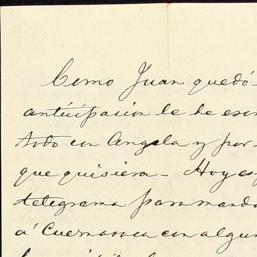 Como Juan quedó
anticipación le de escri
todo con Angela y por
que quisiera - Hoy es
telegrama para manda
á Cuernavaca con algun